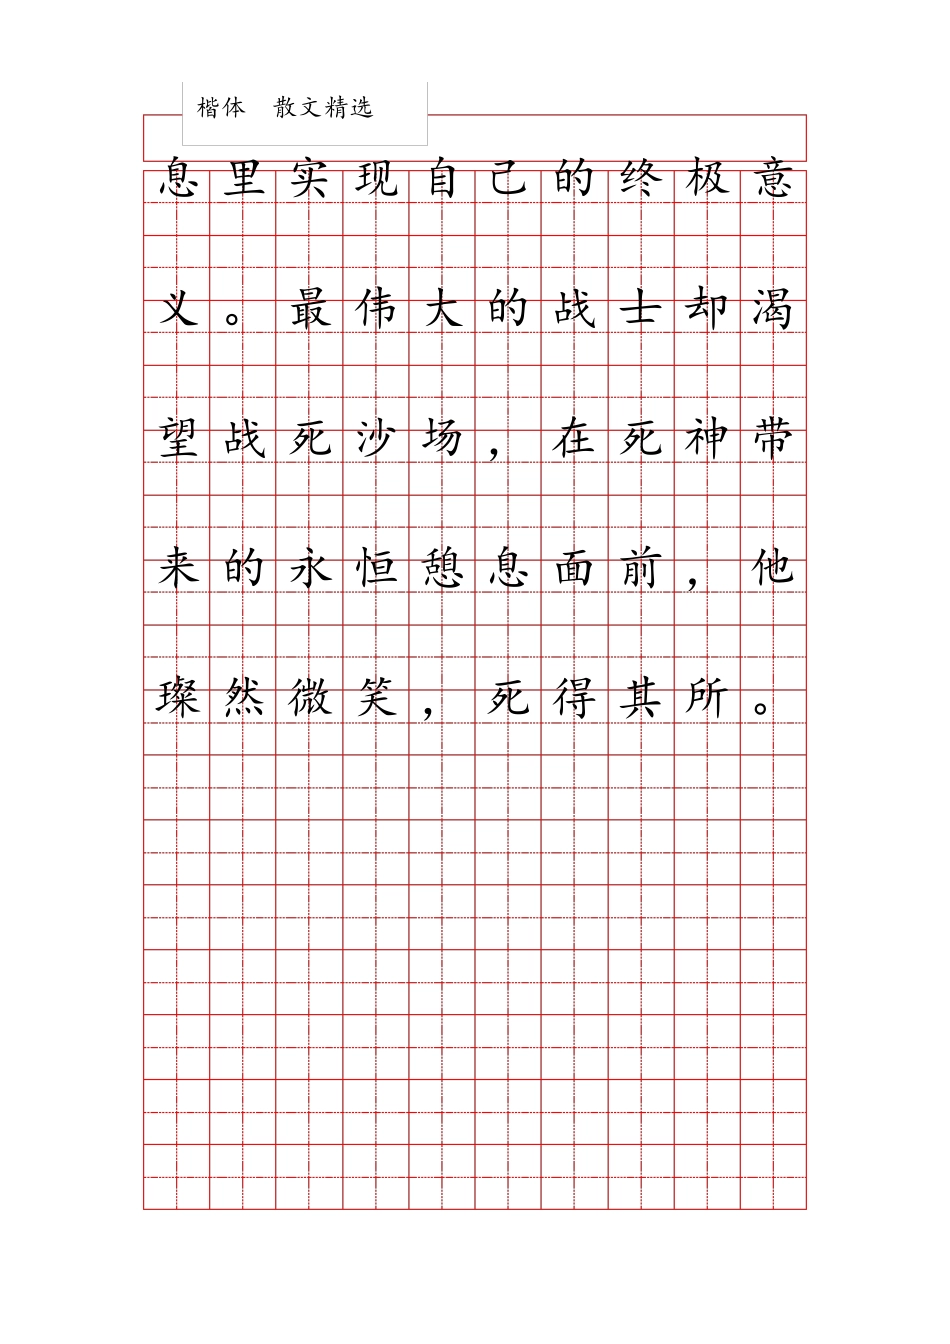 楷体　散文精选
息里实现自己的终极意
义。最伟大的战士却渴
望战死沙场，在死神带
来的永恒憩息面前，他
璨然微笑，死得其所。